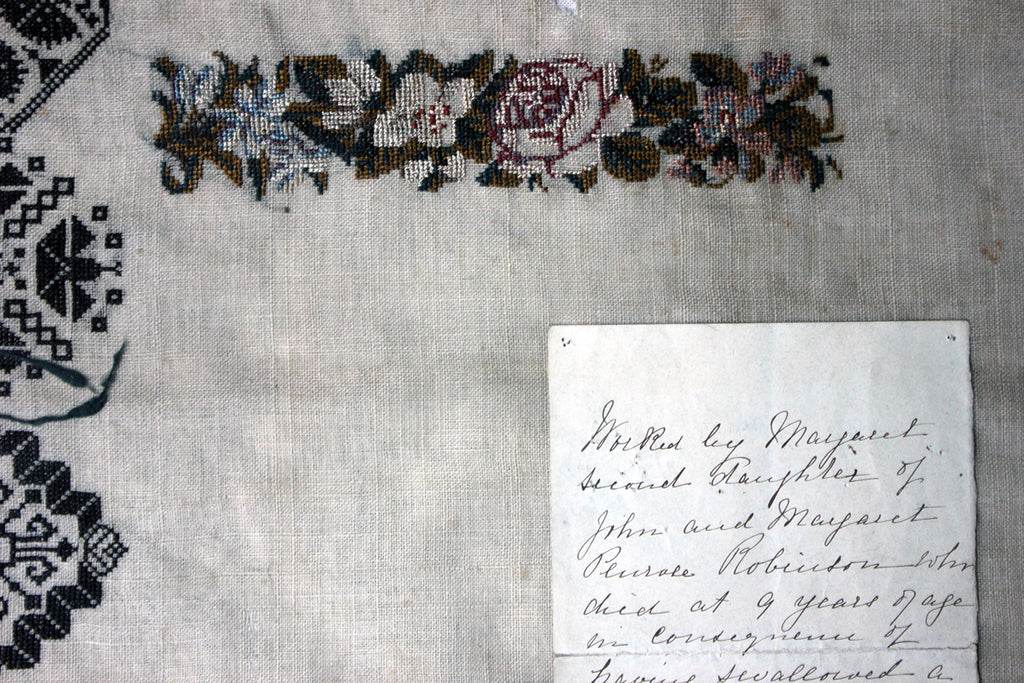 Worked by Margaret
second daughter of
John and Margaret
Penrose Robinson who
died at 9 years of age
in consequence of
having swallowed a